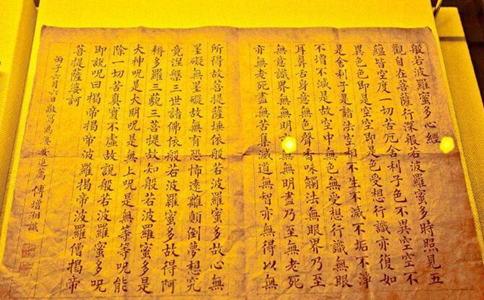 般若波羅蜜多心經
觀自在菩薩行深般若波羅蜜多時照見五
蘊皆空度一切苦厄舍利子色不異空空不
異色色即是空空即是色受想行識亦復如
是舍利子是諸法空相不生不滅不垢不淨
不增不減是故空中無色無受想行識無眼
耳鼻舌身意無色聲香味觸法無眼界乃至
無意識界無無明無明盡乃至無老死
亦無老死盡無苦集滅道無智亦無得以無
所得故菩提薩埵依般若波羅蜜多故心無
罣礙無罣礙故無有恐怖遠離顛倒夢想究
竟涅槃三世諸佛依般若波羅蜜多故得阿
耨多羅三藐三菩提故知般若波羅蜜多是
大神呪是大明呪是無上呪是無等等呪能
除一切苦真實不虛故說般若波羅蜜多呪
即說呪曰揭帝揭帝波羅揭帝波羅僧揭帝
菩提薩婆訶
丙子六月八日敬寫為傅增湘識